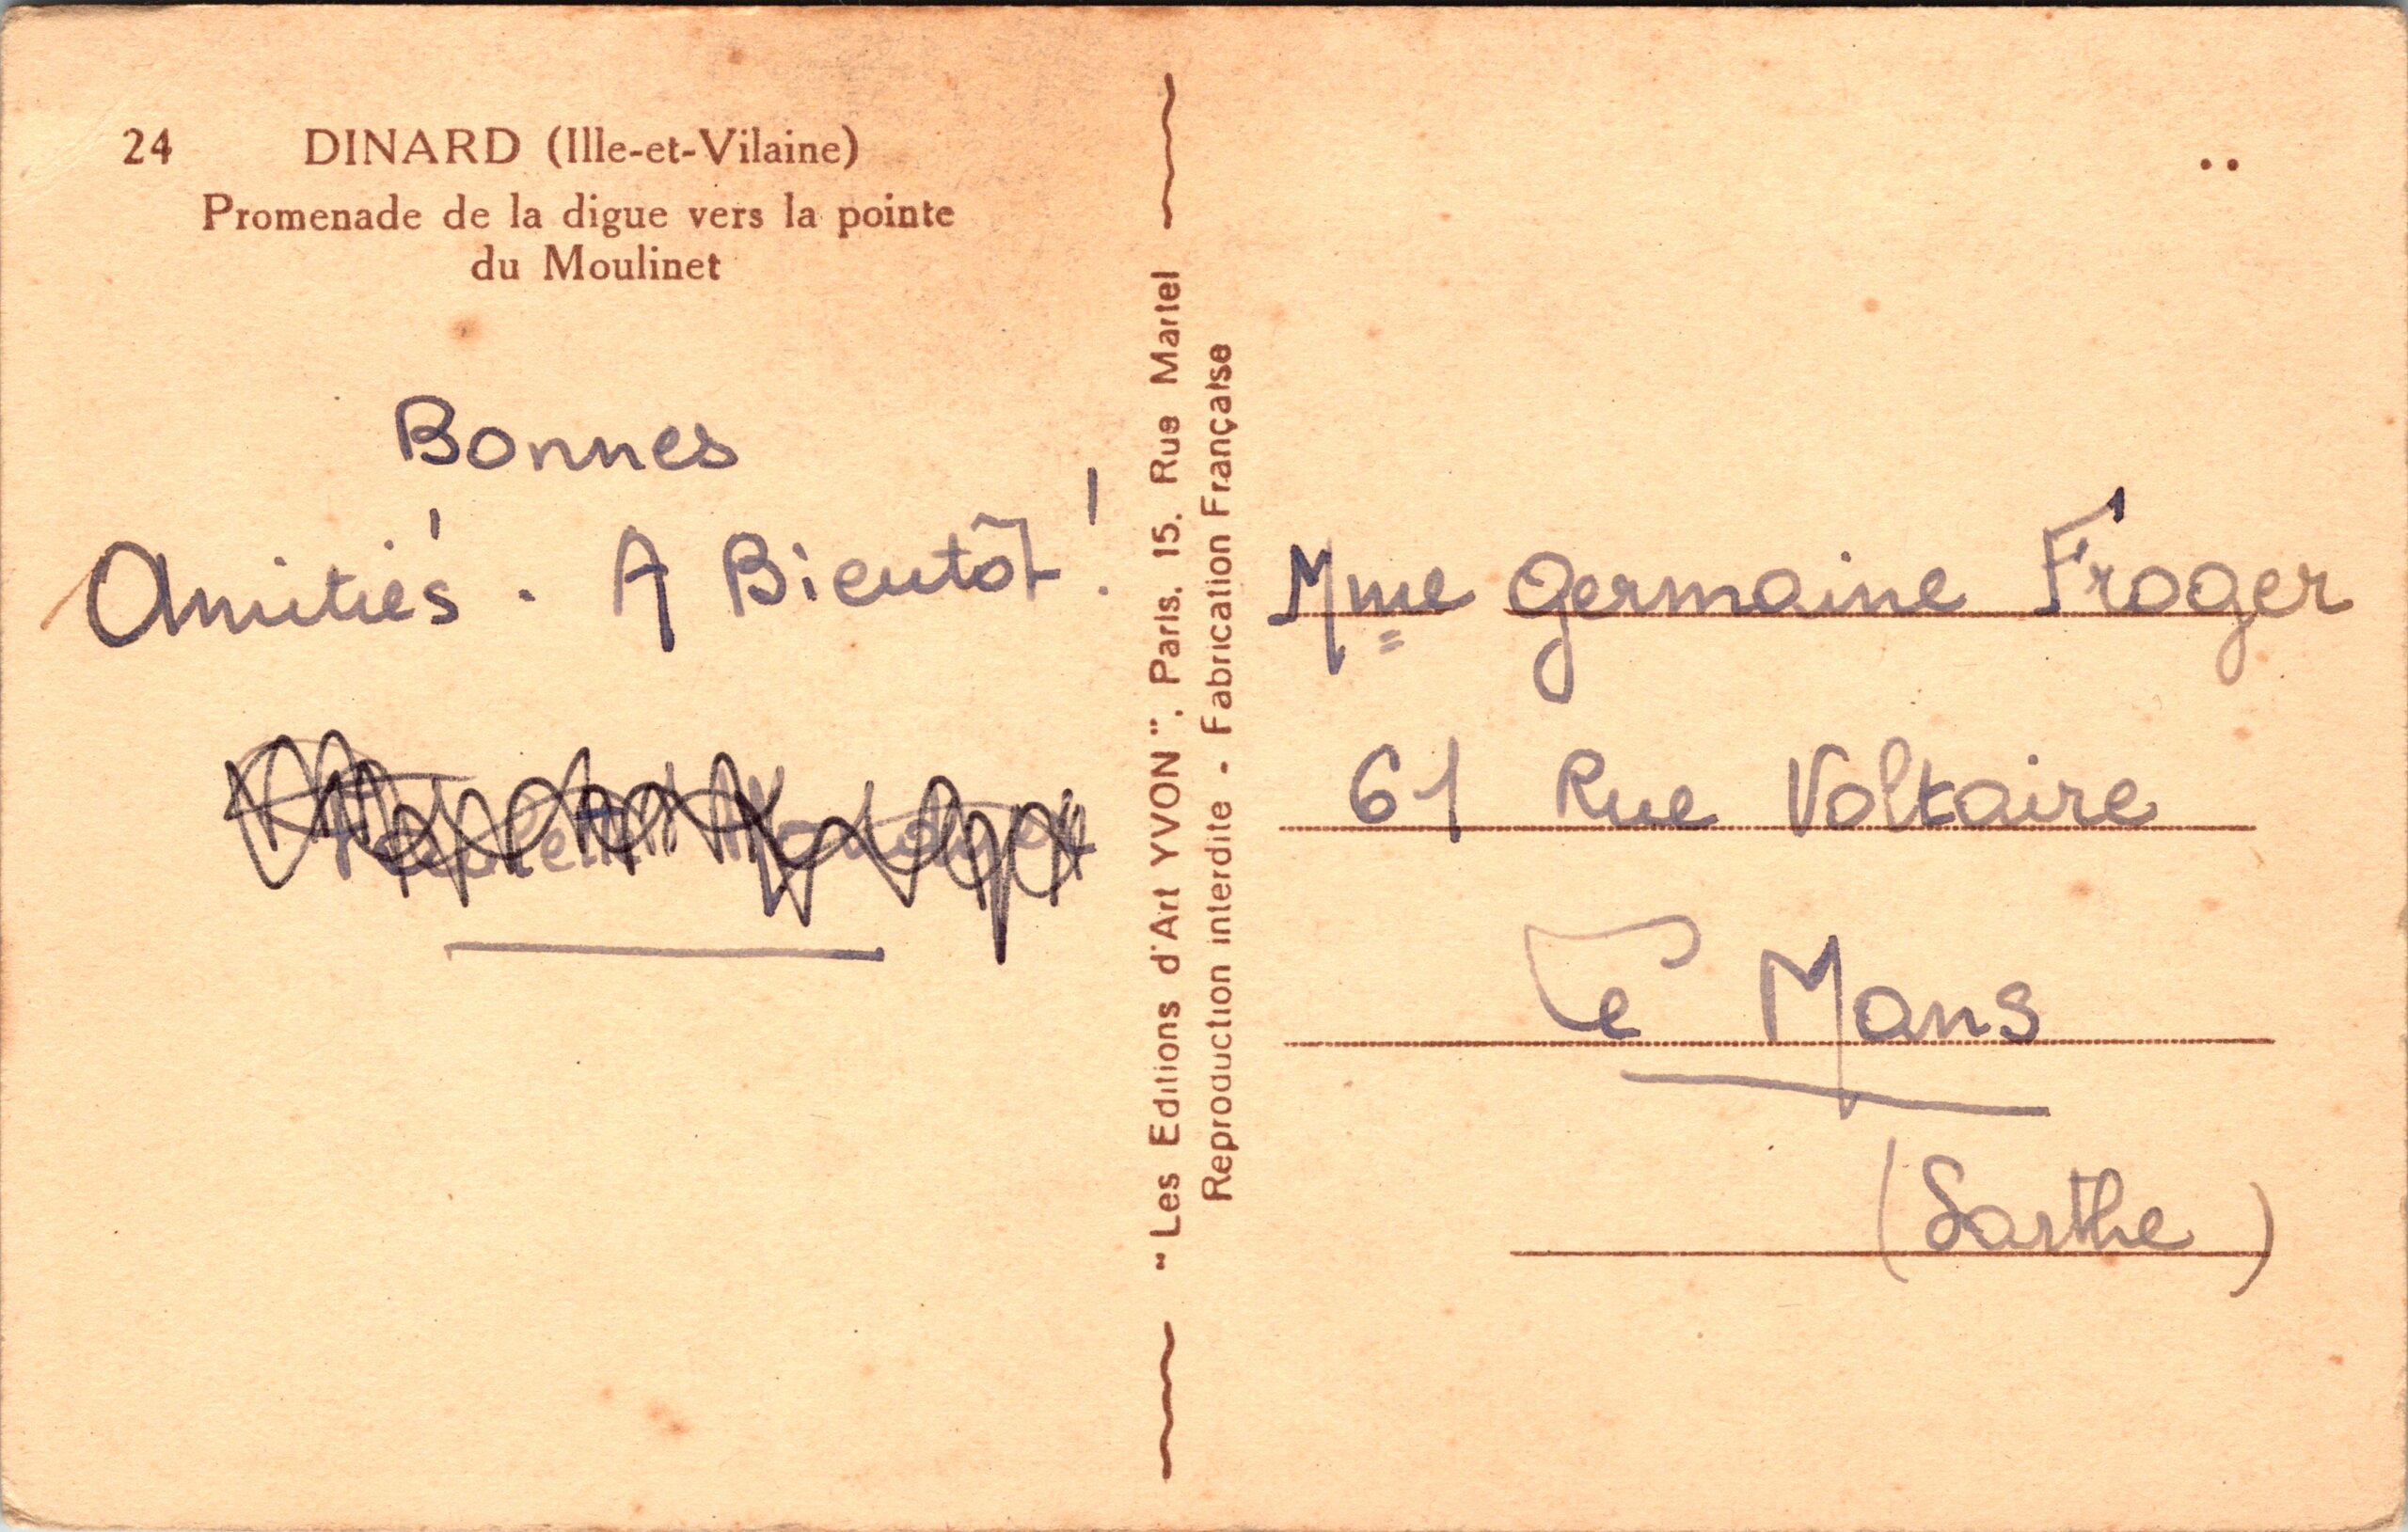 24 DINARD (Ille-et-Vilaine)
Promenade de la digue vers la pointe
du Moulinet
Bonnes
Amitiés. A Bientôt !
"Les Editions d'Art YVON". Paris. 15. Rue Martel
Reproduction interdite - Fabrication Française
Mme Germaine Froger
61 Rue Voltaire
Le Mans
(Sarthe)